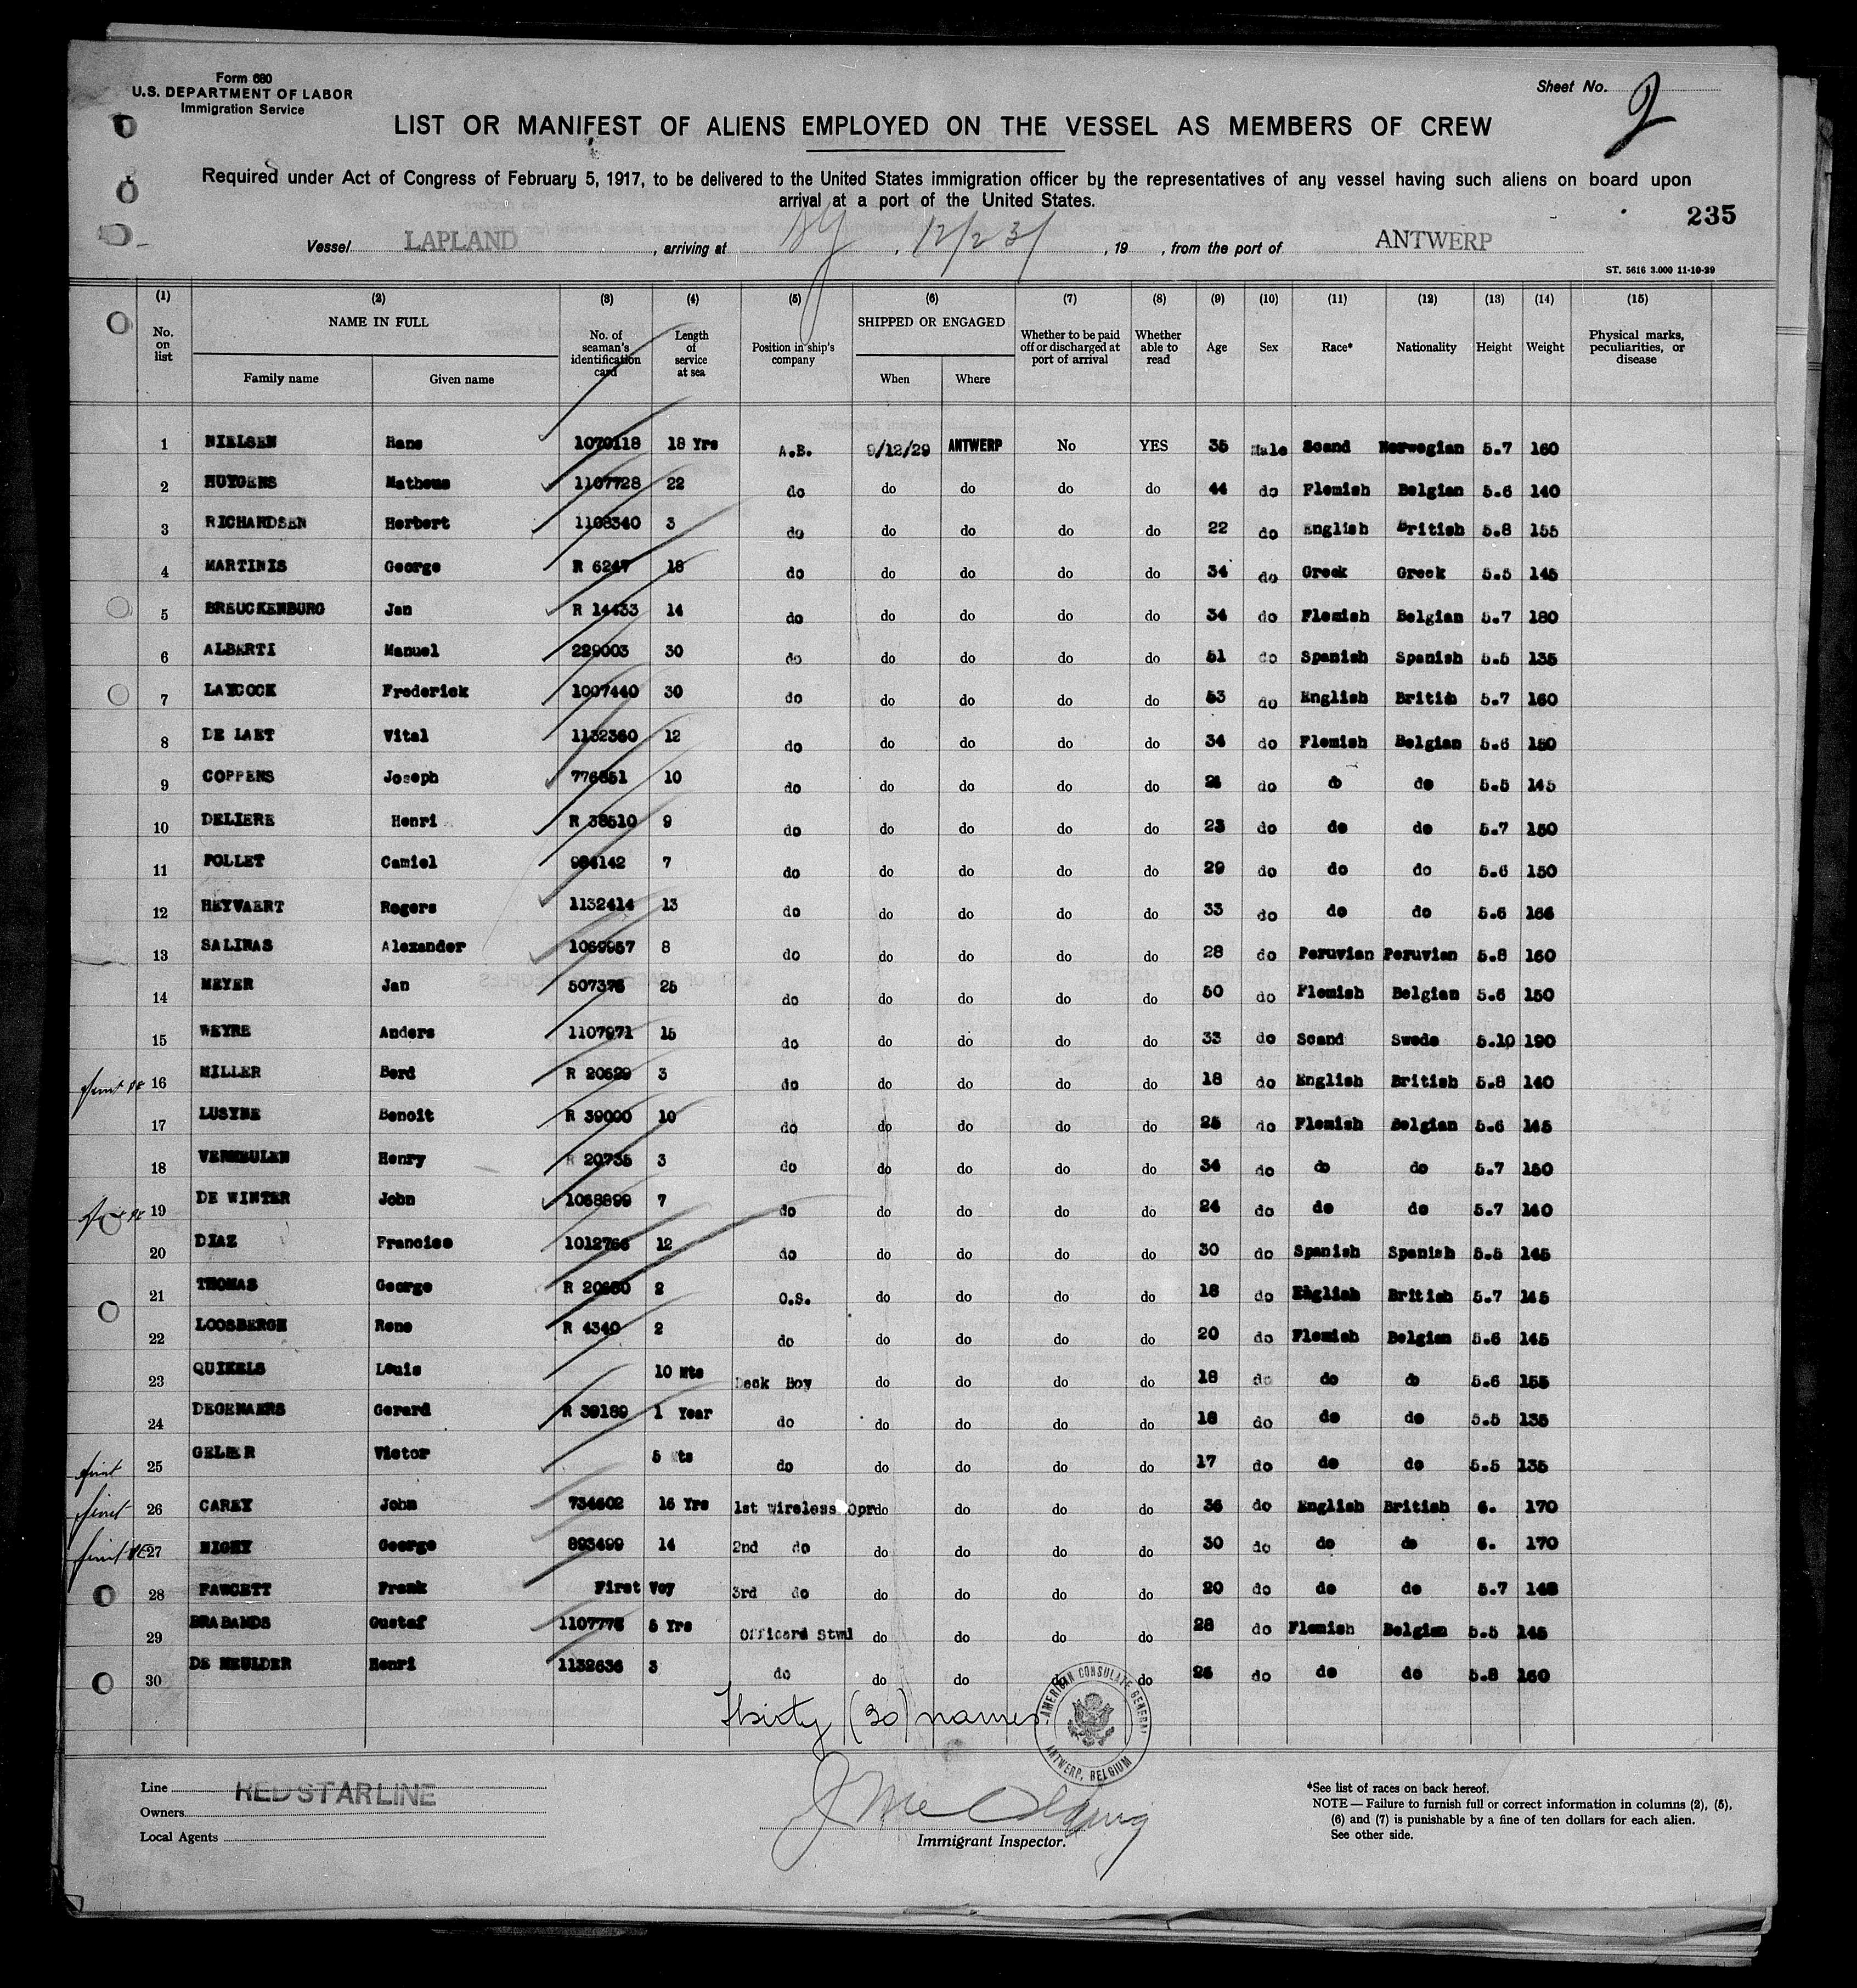 Form 680
U.S. DEPARTMENT OF LABOR
Immigration Service
Sheet No. 2
LIST OR MANIFEST OF ALIENS EMPLOYED ON THE VESSEL AS MEMBERS OF CREW
Required under Act of Congress of February 5, 1917, to be delivered to the United States immigration officer by the representatives of any vessel having such aliens on board upon
arrival at a port of the United States.
235
Vessel LAPLAND, arriving at NY, 12/23/, 19 , from the port of ANTWERP
ST. 5616 3.000 11-10-29
(1) (2) (3) (4) (5) (6) (7) (8) (9) (10) (11) (12) (13) (14) (15)
No. on list NAME IN FULL Family name Given name No. of seaman's identification card Length of service at sea Position in ship's company SHIPPED OR ENGAGED When Where Whether to be paid off or discharged at port of arrival Whether able to read Age Sex Race* Nationality Height Weight Physical marks, peculiarities, or disease
1 NIELSEN Hans 1070118 18 Yrs A.B. 9/12/29 ANTWERP No YES 35 Male Scand Norwegian 5.7 160
2 HUYGENS Matheus 1107728 22 do do do do do 44 do Flemish Belgian 5.6 140
3 RICHARDSEN Herbert 1108340 3 do do do do do 22 do English British 5.8 155
4 MARTINIS George R 6247 18 do do do do do 34 do Greek Greek 5.5 145
5 BREUCKENBURG Jan R 14433 14 do do do do do 34 do Flemish Belgian 5.7 180
6 ALBERTI Manuel 229003 30 do do do do do 51 do Spanish Spanish 5.5 135
7 LAYCOCK Frederick 1007440 30 do do do do do 53 do English Britih 5.7 160
8 DE LAET Vital 1132360 12 do do do do do 34 do Flemish Belgian 5.6 150
9 COPPENS Joseph 776851 10 do do do do do do do do 5.5 145
10 DELIERE Henri R 38510 9 do do do do do 23 do do do 5.7 150
11 POLLET Camiel 984142 7 do do do do do 29 do do do 5.6 150
12 HEYVAERT Rogers 1132414 13 do do do do do 33 do do do 5.6 166
13 SALINAS Alexander 1069957 8 do do do do do 28 do Peruvian Peruvian 5.8 160
14 MEYER Jan 507376 25 do do do do do 50 do Flemish Belgian 5.6 150
15 WEYRE Anders 1107971 15 do do do do do 33 do Scand Swede 5.10 190
16 MILLER Berd R 20629 3 do do do do do 18 do English British 5.8 140
17 LUSYNE Benoit R 39000 10 do do do do do 25 do Flemish Belgian 5.6 145
18 VERMEULEN Henry R 20735 3 do do do do do 34 do do do 5.7 150
19 DE WINTER John 1068899 7 do do do do do 24 do do do 5.7 140
20 DIAZ Francisc 1012766 12 do do do do do 30 do Spanish Spanish 5.5 145
21 THOMAS George R 20680 2 O.S. do do do do 18 do English British 5.7 145
22 LOOSBERGH Rene R 4340 2 do do do do do 20 do Flemish Belgian 5.6 145
23 QUIKELS Louis 10 Mts Deck Boy do do do do 18 do do do 5.6 155
24 DEGENAERS Gerard R 39189 1 Year do do do do do 18 do do do 5.5 135
25 Victor 5 Mts do do do do do 17 do do do 5.5 135
26 CAREY John 734602 16 Yrs 1st Wireless Opr do do do do 36 do English British 6. 170
27 George 893499 14 2nd do do do do do 30 do do do 6. 170
28 FAWCETT Frank First Voy 3rd do do do do do 20 do do do 5.7 148
29 BRABANDS Gustaf 1107775 5 Yrs Officers Stwd do do do do 28 do Flemish Belgian 5.5 145
30 DE MEULDER Henri 1132636 3 do do do do do 26 do do do 5.8 160
Thirty (30) names
AMERICAN CONSULATE GENERAL ANTWERP, BELGIUM
Line RED STAR LINE
Owners
Local Agents
Immigrant Inspector.
*See list of races on back hereof.
NOTE — Failure to furnish full or correct information in columns (2), (5),
(6) and (7) is punishable by a fine of ten dollars for each alien.
See other side.